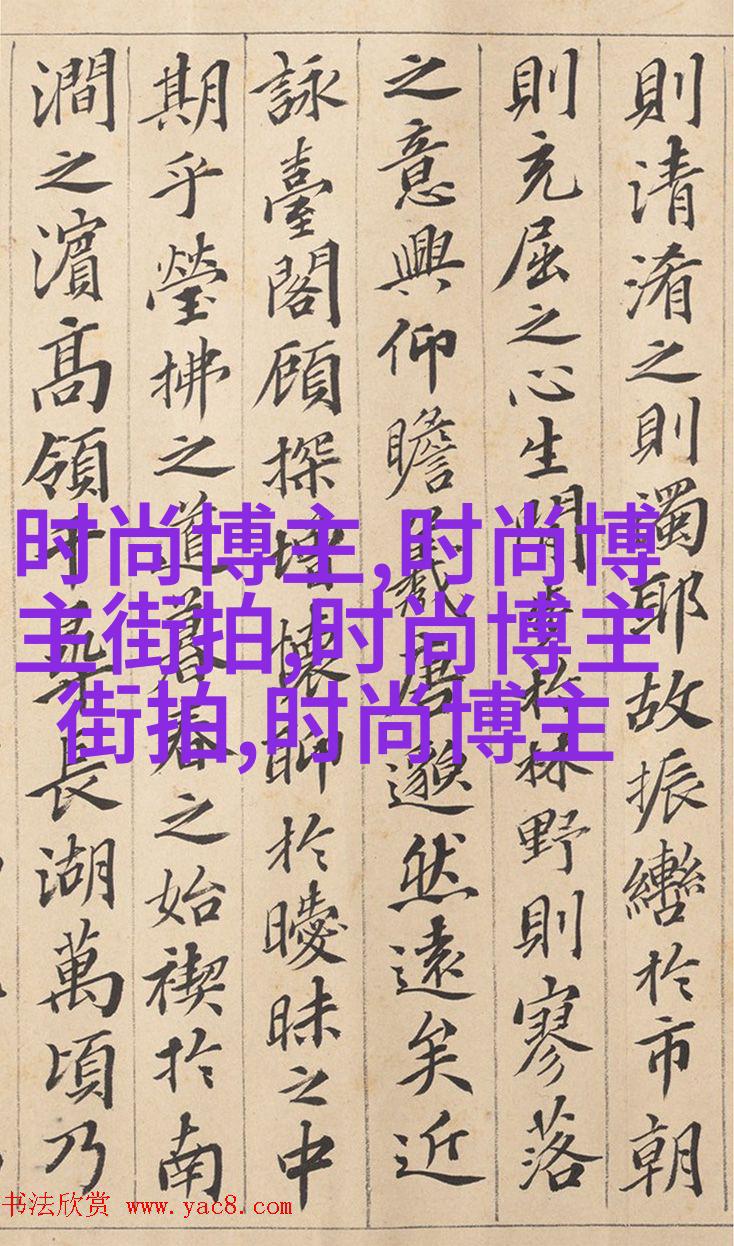 則清淆之則濁耶故振轡於市朝
則充屈之心生閒步於林野則寥落
之意興仰瞻羲唐邈然遠矣近
詠臺閣顧探增懷聊於曖昧之中
期乎瑩拂之道暮春之始禊於南
澗之濱高領千尋長湖萬頃乃
时尚博主,时尚博
主街拍,时尚博主
街拍,时尚博主
书法欣赏 www.yac8.com